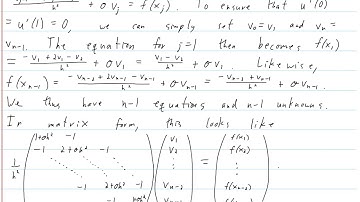 + σ v_j = f(x_j). To ensure that u'(0)
= u'(1) = 0, we can simply set v_0 = v_1 and v_n =
v_{n-1}. The equation for j=1 then becomes f(x_1)
= \frac{-v_1 + 2v_1 - v_2}{h^2} + σ v_1 = \frac{v_1 - v_2}{h^2} + σ v_1. Likewise,
f(x_{n-1}) = \frac{-v_{n-2} + 2v_{n-1} - v_{n-1}}{h^2} + σ v_{n-1} = \frac{-v_{n-2} + v_{n-1}}{h^2} + σ v_{n-1}.
We thus have n-1 equations and n-1 unknowns.
In matrix form, this looks like
1+σh² -1 v_1 f(x_1)
-1 2+σh² -1 v_2 f(x_2)
\frac{1}{h^2} ⋱ ⋱ ⋱ ⋮ = ⋮ .
-1 2+σh² -1 v_{n-2} f(x_{n-2})
-1